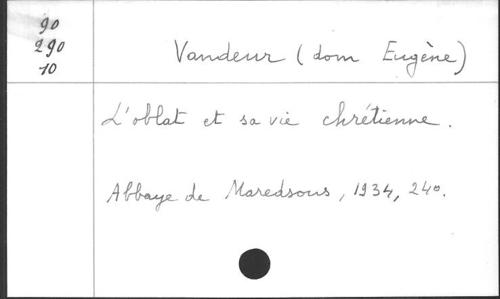 90
290
10
Vandeur (dom Eugène)
L'oblat et sa vie chrétienne.
Abbaye de Maredsous, 1934, 24°.